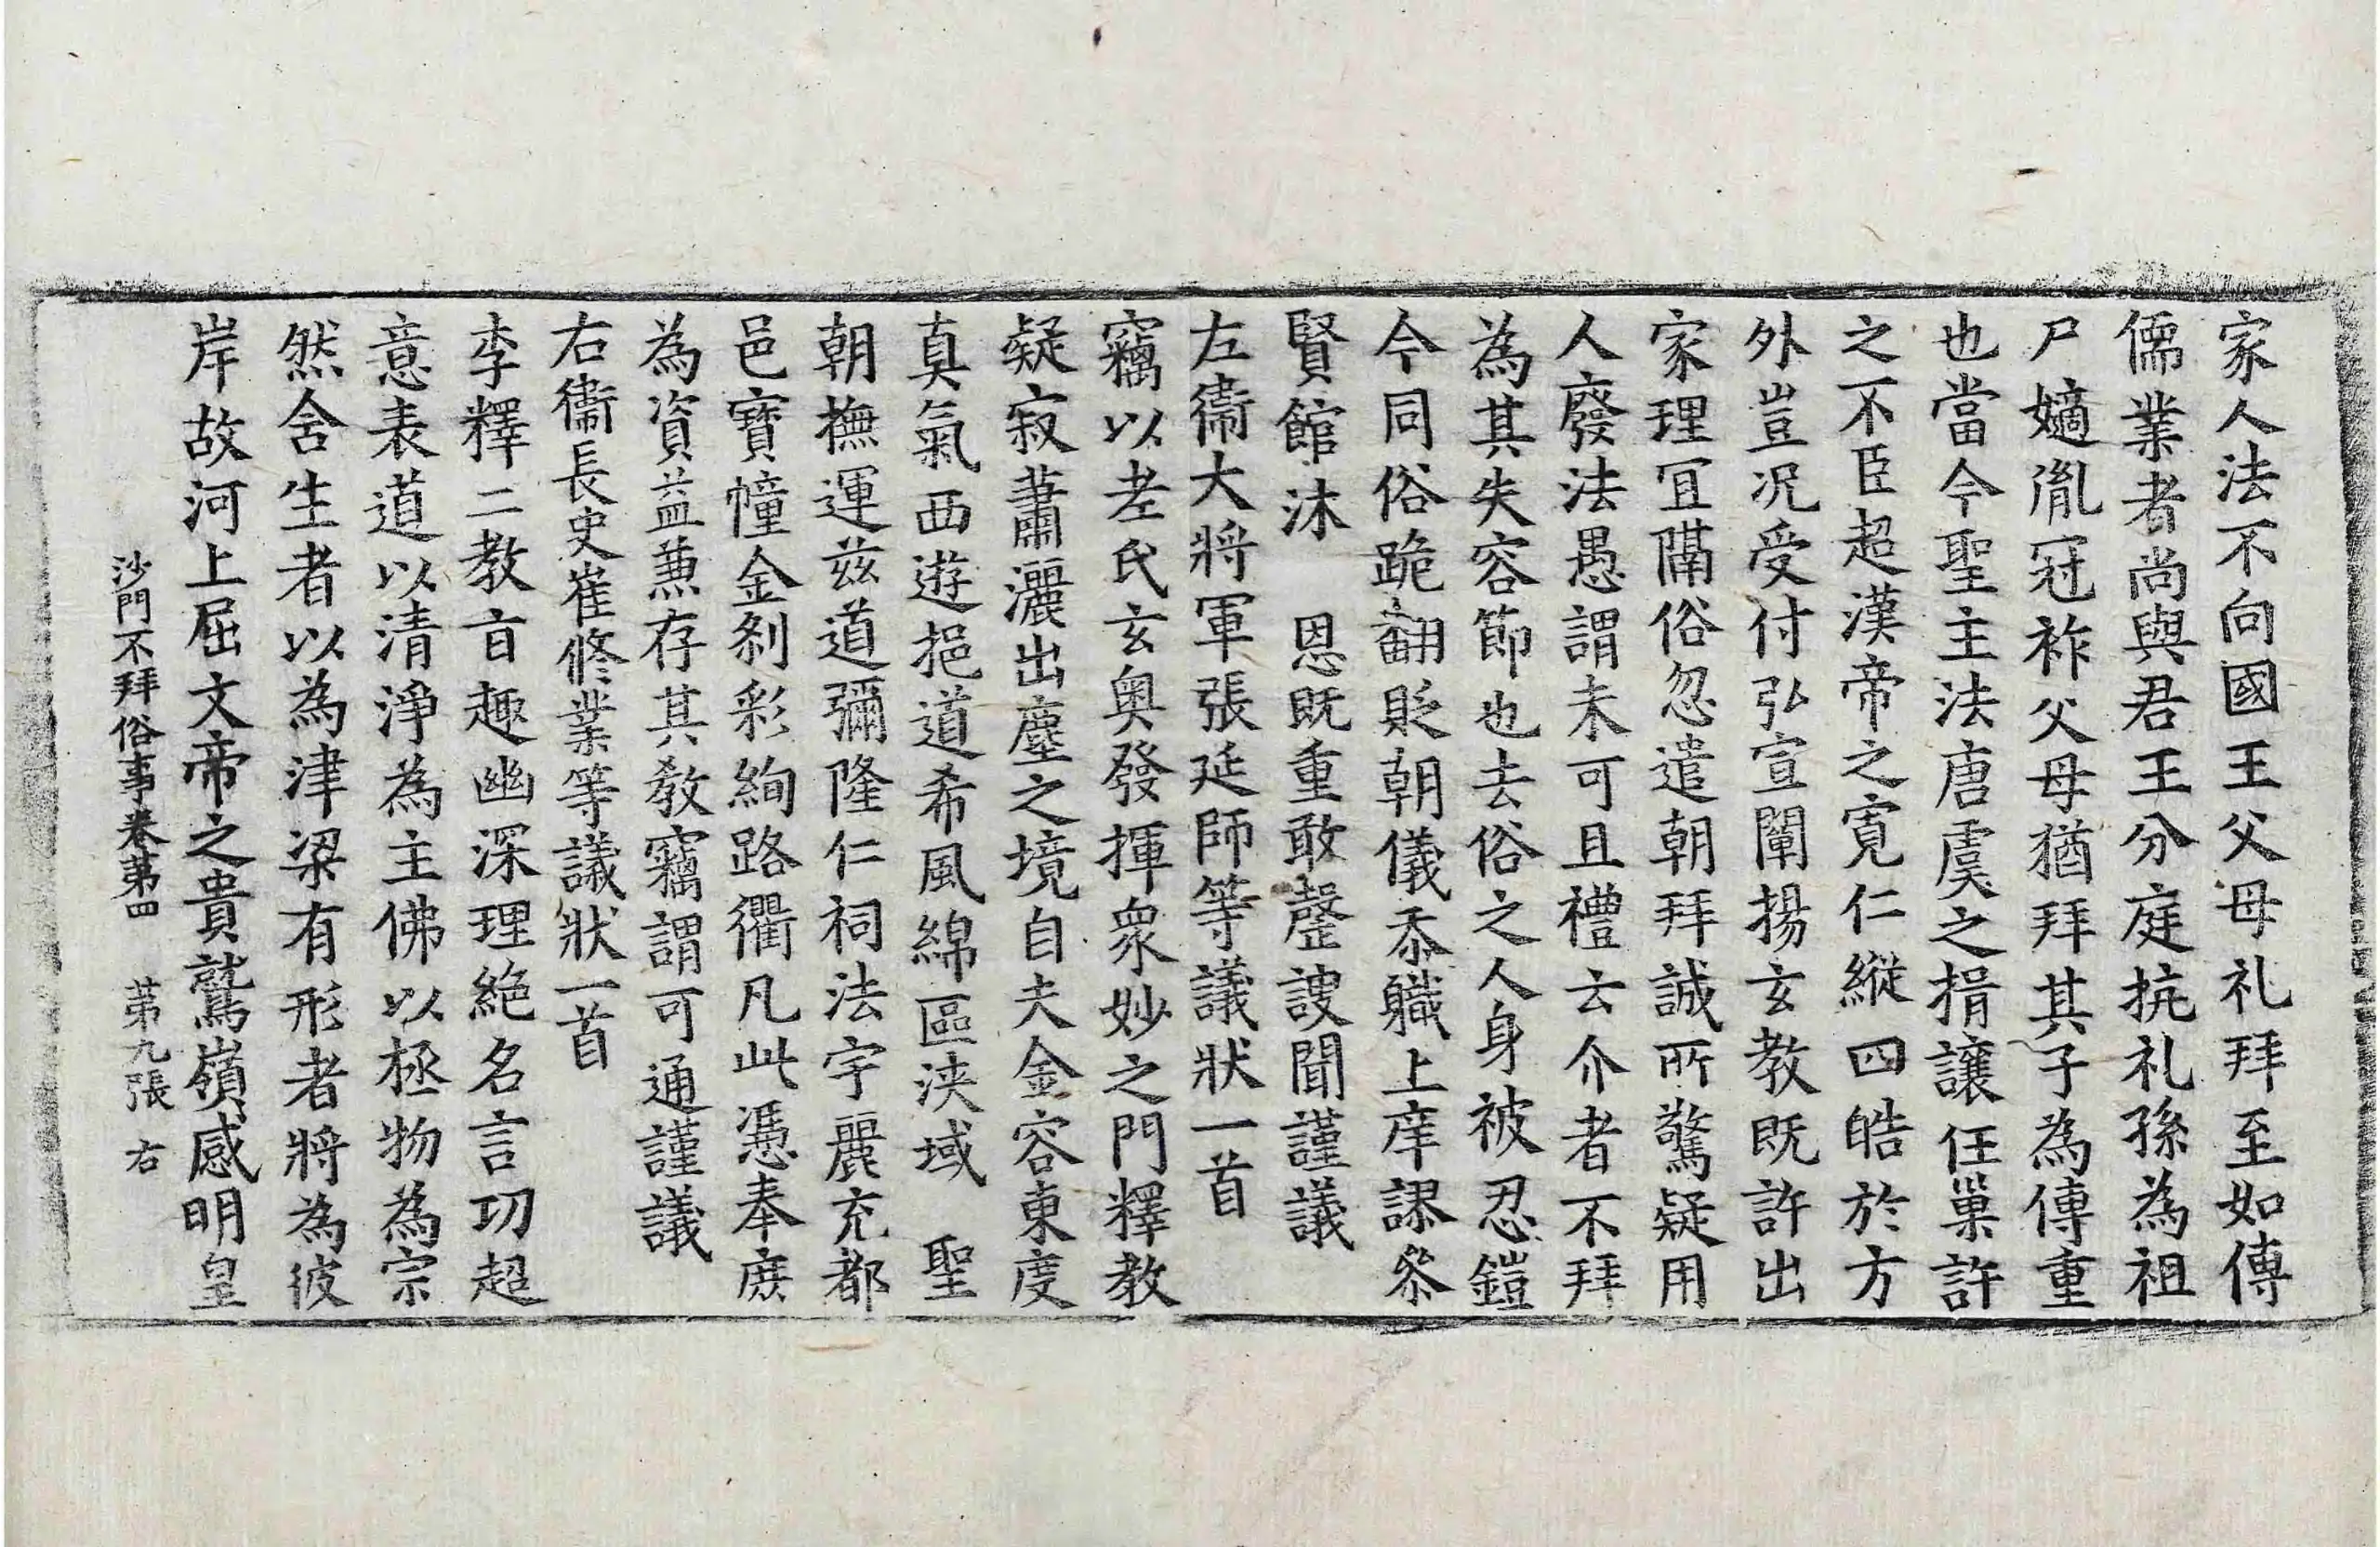 家人法不向國王父母礼拜至如傳
儒業者尚與君王分庭抗礼孫為祖
尸嫡胤冠祚父母猶拜其子為傳重
也當今聖主法唐虞之揖讓任巢許
之不臣超漢帝之寬仁縱四皓於方
外豈況受付弘宣闡揚玄教既許出
家理冝隔俗忽遣朝拜誠所驚疑用
人廢法愚謂未可且禮云介者不拜
為其失容節也去俗之人身被忍鎧
今同俗跪翻貶朝儀忝職上庠謬叅
賢館沐　恩既重敢罄謏聞謹議
左衛大將軍張延師等議狀一首
竊以老氏玄奧發揮衆妙之門釋教
疑寂蕭灑出塵之境自夫金容東度
真氣西遊挹道希風綿區浹域　聖
朝撫運兹道彌隆仁祠法宇麗充都
邑寶幢金刹彩絢路衢凡此憑奉庶
為資益兼存其教竊謂可通謹議
右衛長史崔修業等議狀一首
李釋二教旨趣幽深理絕名言功超
意表道以清淨為主佛以極物為宗
然舍生者以為津梁有形者將為彼
岸故河上屈文帝之貴鷲嶺感明皇
沙門不拜俗事卷第四　第九張　右